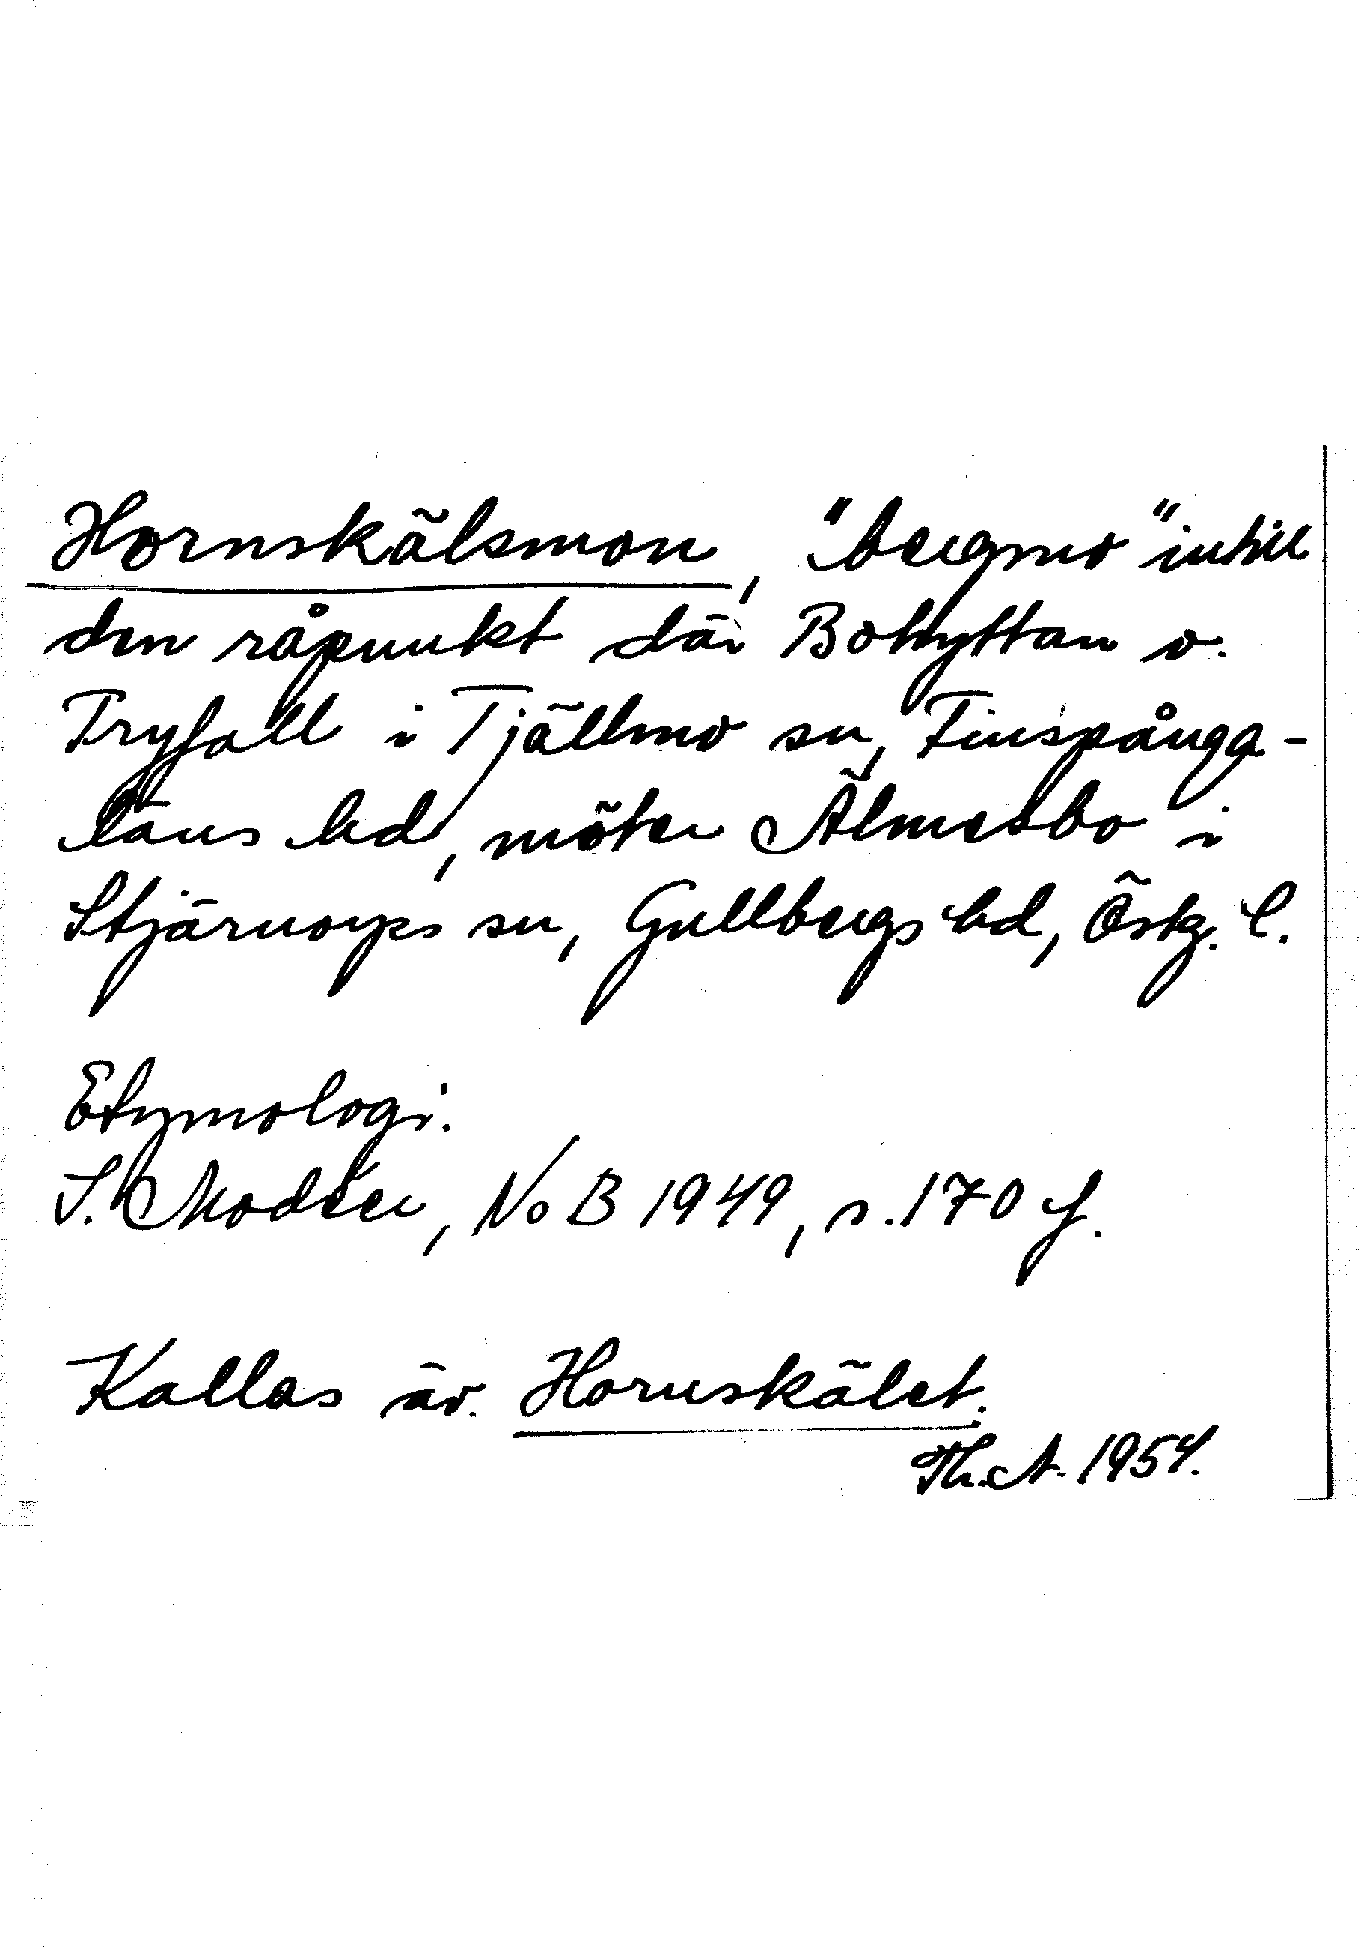 Hornskälsmon, "bergmo" intill
den råpunkt där Bohyttan o.
Tryfall i Tjällmo sn, Finspånga-
läns hd, möter Älmesbo i
Stjärnorps sn, Gullbergs hd, Östg. l.
Etymologi.
I. Modéer, NoB 1949, s. 170 f.
Kallas äv. Hornskälet.
Th. A. 1954.